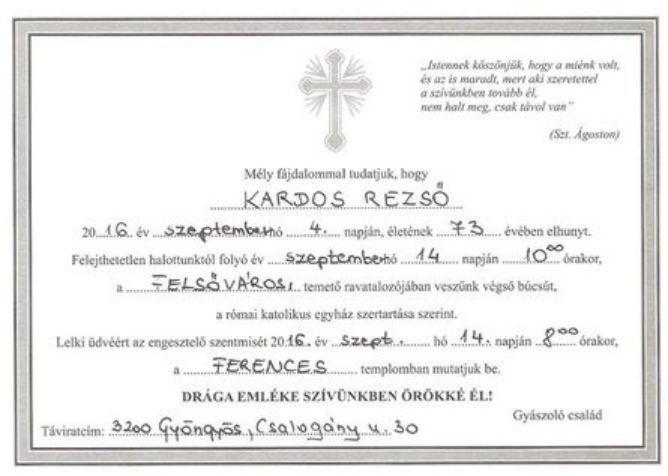 „Istennek köszönjük, hogy a miénk volt,
és az is maradt, mert aki szeretettel
a szívünkben tovább él,
nem halt meg, csak távol van”
(Szt. Ágoston)
Mély fájdalommal tudatjuk, hogy
KARDOS REZSŐ
2016. év szeptember hó 4. napján, életének 73 évében elhunyt.
Felejthetetlen halottunktól folyó év szeptember hó 14 napján 10⁰⁰ órakor,
a FELSŐVÁROSI temető ravatalozójában veszünk végső búcsút,
a római katolikus egyház szertartása szerint.
Lelki üdvéért az engesztelő szentmisét 2016. év szept. hó 14. napján 8⁰⁰ órakor,
a FERENCES templomban mutatjuk be.
DRÁGA EMLÉKE SZÍVÜNKBEN ÖRÖKKÉ ÉL!
Gyászoló család
Táviratcím: 3200 Gyöngyös, Csalogány u. 30